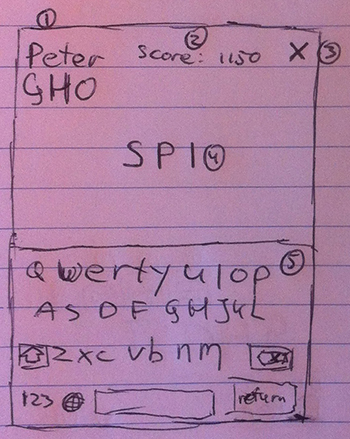 ① ② ③
Peter Score: 1150 X
GHO
SPI ④
Qwertyuiop ⑤
ASDFGHJKL
zxcvbnm
123 return